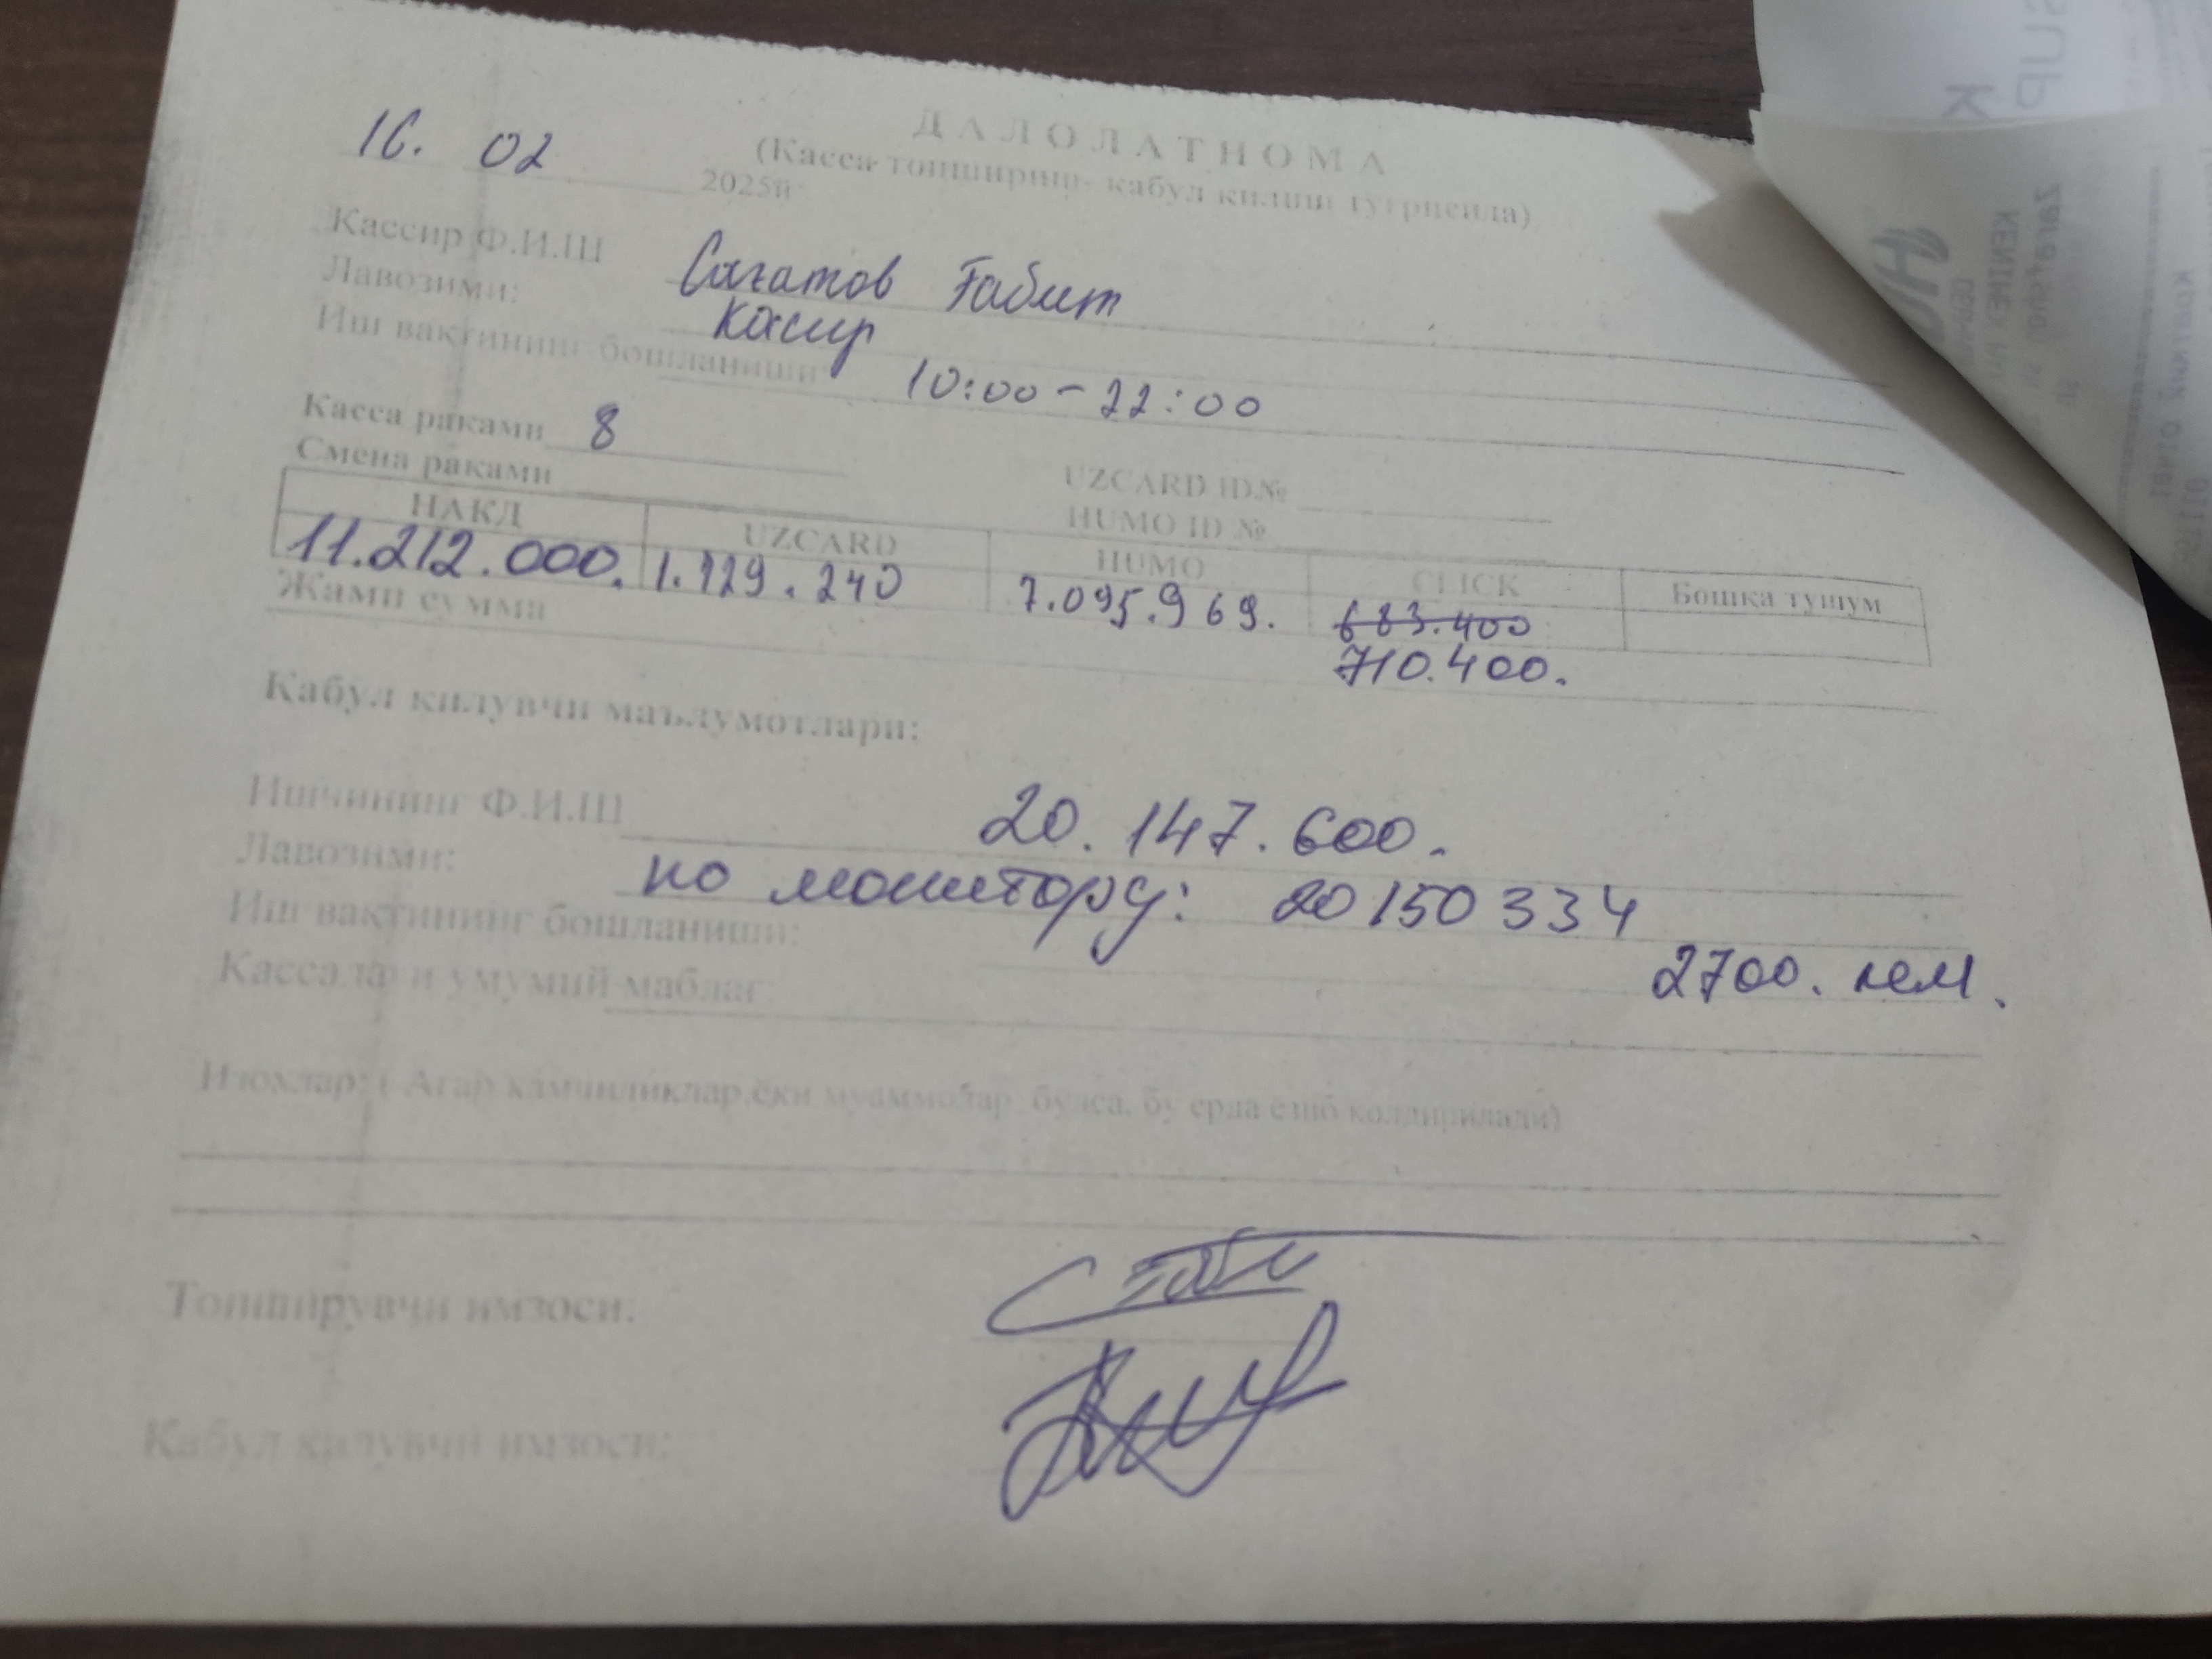 ДАЛОЛАТНОМА
(Касса топшириш- кабул килиш тугрисида)
16. 02 2025й
Кассир Ф.И.Ш Сагатов Ғабит
Лавозими: Касир
Иш вактининг бошланиши 10:00 - 22:00
Касса раками 8
Смена раками UZCARD ID№
HUMO ID №
НАКД UZCARD HUMO CLICK Бошка тушум
11.212.000. 1.129.240 7.095.969. 683.400
710.400.
Жами сумма
Кабул килувчи маълумотлари:
Ишчининг Ф.И.Ш 20.147.600.
Лавозими: по монитору: 20150334
Иш вактининг бошланиши: 2700. кем.
Кассадаги умумий маблаг:
Изохлар: ( Агар камчиликлар ёки муаммолар булса, бу ерда ёзиб колдирилади)
Топширувчи имзоси:
Кабул килувчи имзоси: